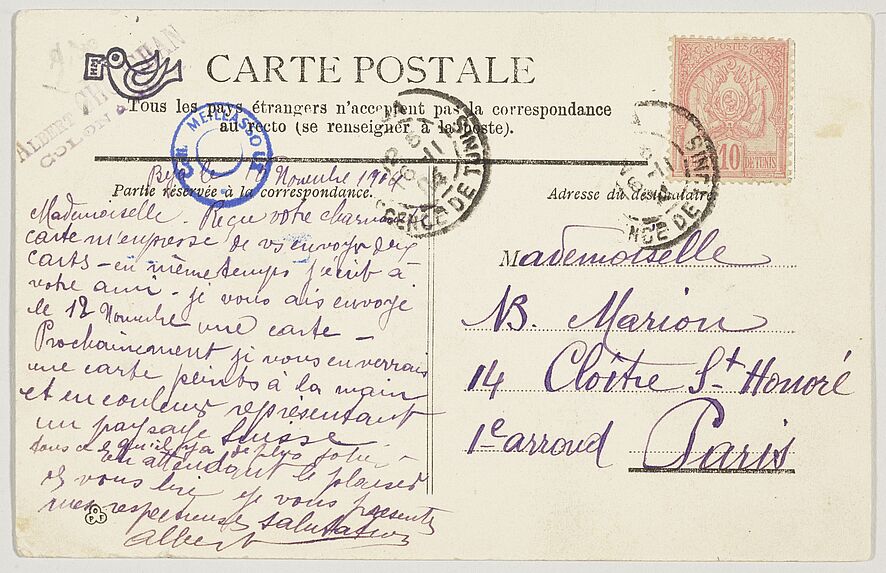 CARTE POSTALE
Tous les pays étrangers n'acceptent pas la correspondance
au recto (se renseigner à la poste).
ALBERT
COLON
MEILLASSOUX
POSTES
10 DE TUNIS
AGENCE DE TUNIS
AGENCE DE TUNIS
Novembre 1904
Partie réservée à la correspondance.
Adresse du destinataire
Mademoiselle. Reçu votre
carte m'empresse de vs envoyer deux
carts - en même temps j'écrit à
votre ami - je vous ais envoyé
le 12 Novembre une carte -
Prochainement je vous enverrais
une carte peints à la main
et en couleurs représentant
un paysage Suisse
dans ce qu'il y a de plus joli -
en attendant le plaisir
de vous lire je vous présente
mes respectueuses salutations
Albert
Mademoiselle
B. Marion
14 Cloître St Honoré
1e arrond Paris